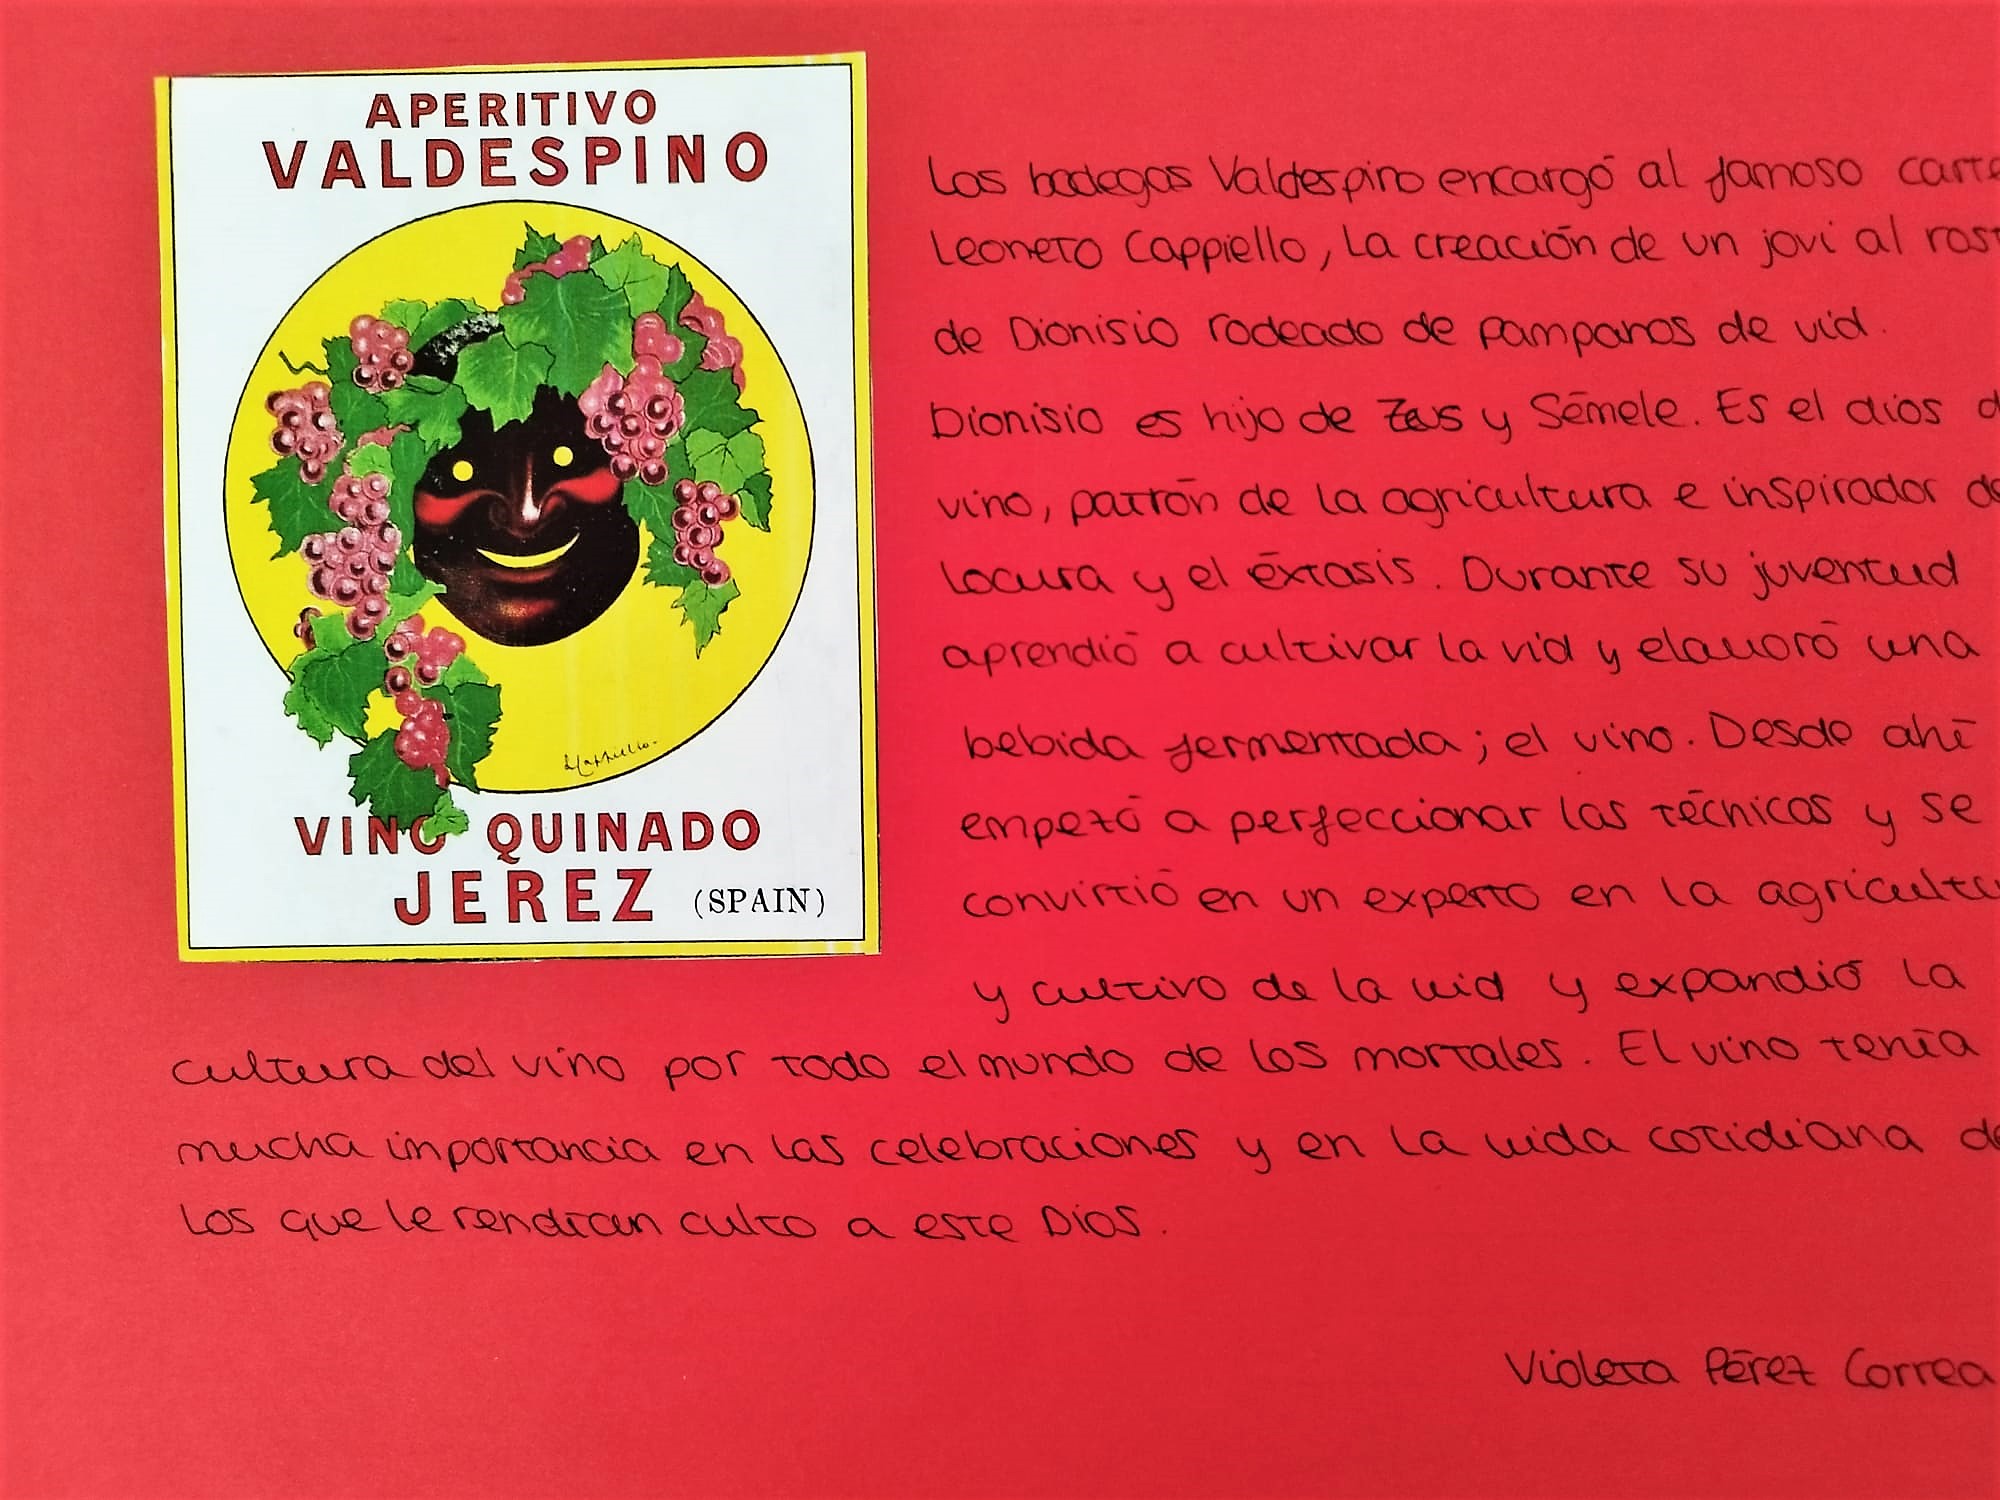 APERITIVO
VALDESPINO
LCappiello.
VINO QUINADO
JEREZ (SPAIN)
Las bodegas Valdespino encargó al famoso carte
Leoneto Cappiello, la creación de un jovi al rost
de Dionisio rodeado de pámpanos de vid.
Dionisio es hijo de Zeus y Sémele. Es el dios d
vino, patrón de la agricultura e inspirador de
locura y el éxtasis. Durante su juventud
aprendió a cultivar la vid y elavoró una
bebida fermentada; el vino. Desde ahí
empezó a perfeccionar las técnicas y se
convirtió en un experto en la agricultu
y cultivo de la vid y expandió la
cultura del vino por todo el mundo de los mortales. El vino tenía
mucha importancia en las celebraciones y en la vida cotidiana de
los que le rendían culto a este Dios.
Violeta Pérez Correa